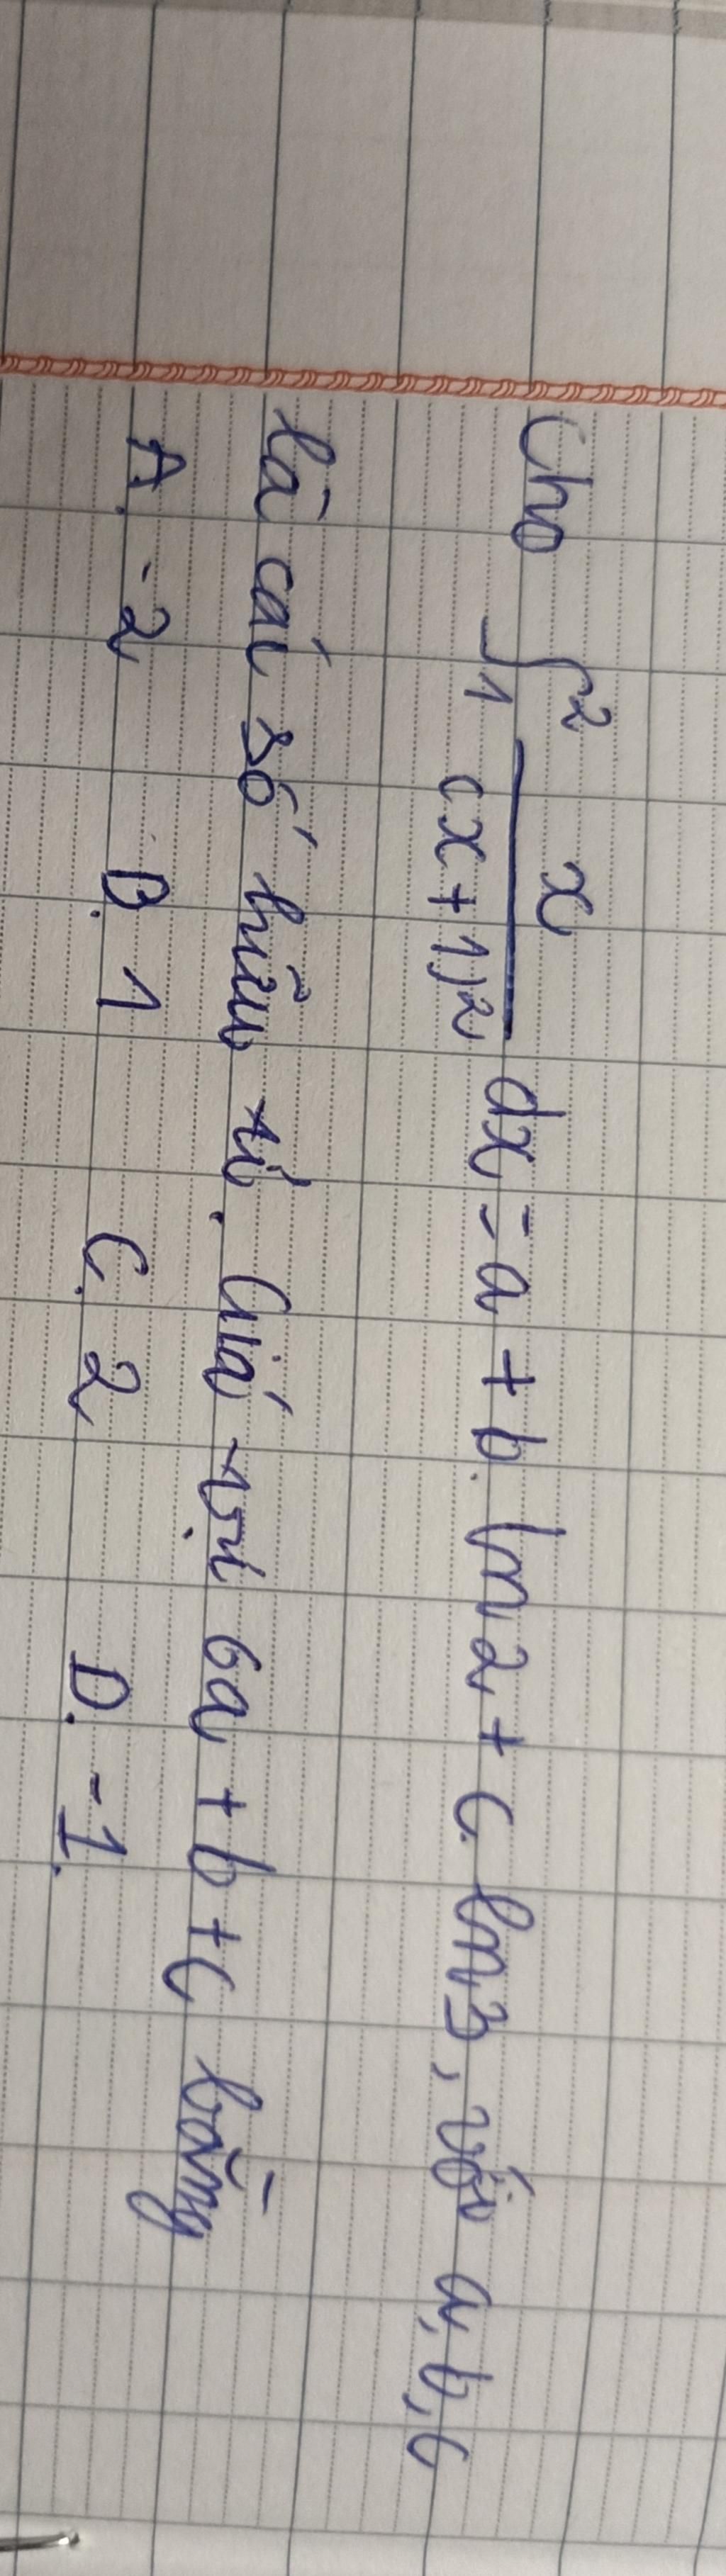 Cho ∫₁² x/(x+1)² dx = a + b. ln2 + c. ln3, với a, b, c
là các số hữu tỉ. Giá trị 6a + b + c bằng
A. -2 B. 1 C. 2 D. -1.